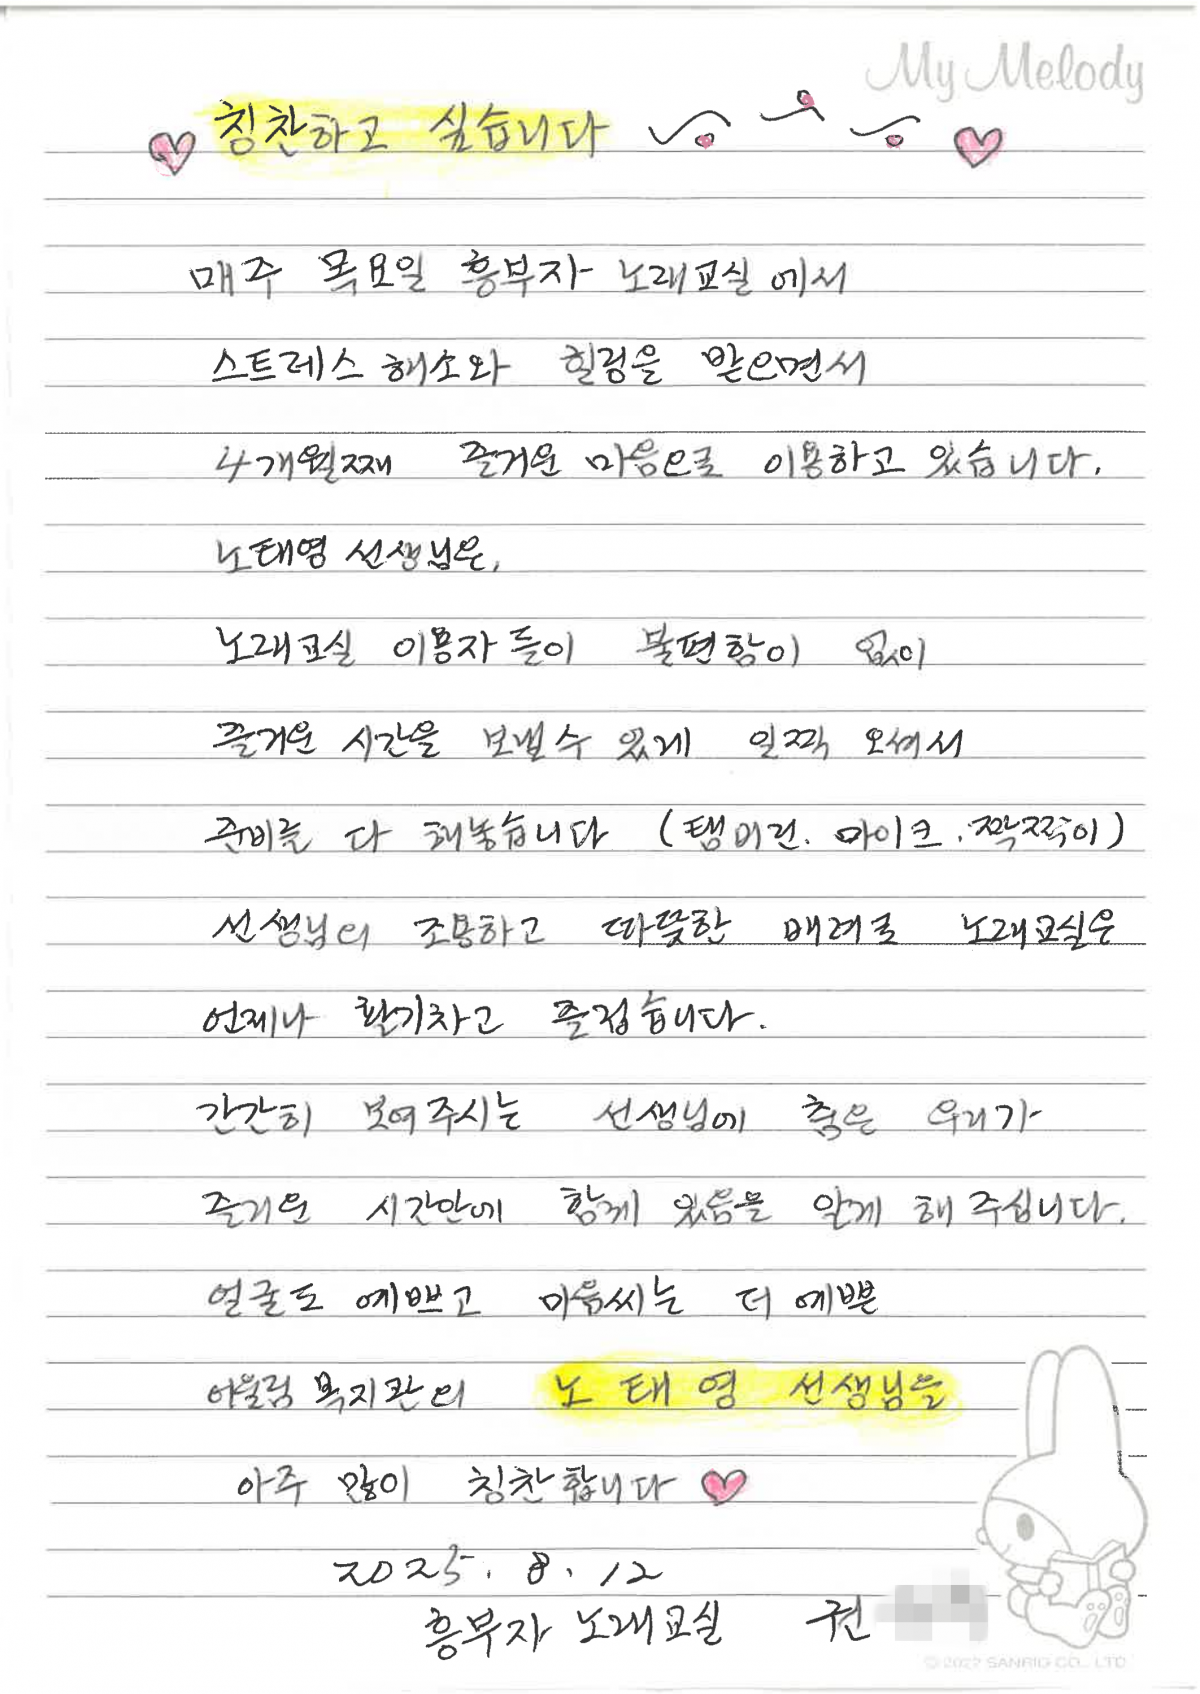 My Melody
칭찬하고 싶습니다
매주 목요일 흥부자 노래교실에서
스트레스해소와 힐링을 받으면서
4개월째 즐거운 마음으로 이용하고 있습니다.
노태영 선생님은,
노래교실 이용자들이 불편함이 없이
즐거운 시간을 보낼수 있게 일찍 오셔서
준비를 다 해놓습니다 (탬버린. 마이크. 짝짝이)
선생님의 조용하고 따뜻한 배려로 노래교실은
언제나 활기차고 즐겁습니다.
간간히 보여주시는 선생님에 춤은 우리가
즐거운 시간안에 함께 있음을 알게 해 주십니다.
얼굴도 예쁘고 마음씨는 더 예쁜
어울림 복지관의 노태영 선생님을
아주 많이 칭찬합니다
2025. 8. 12
흥부자 노래교실 권
© 2022 SANRIO CO., LTD